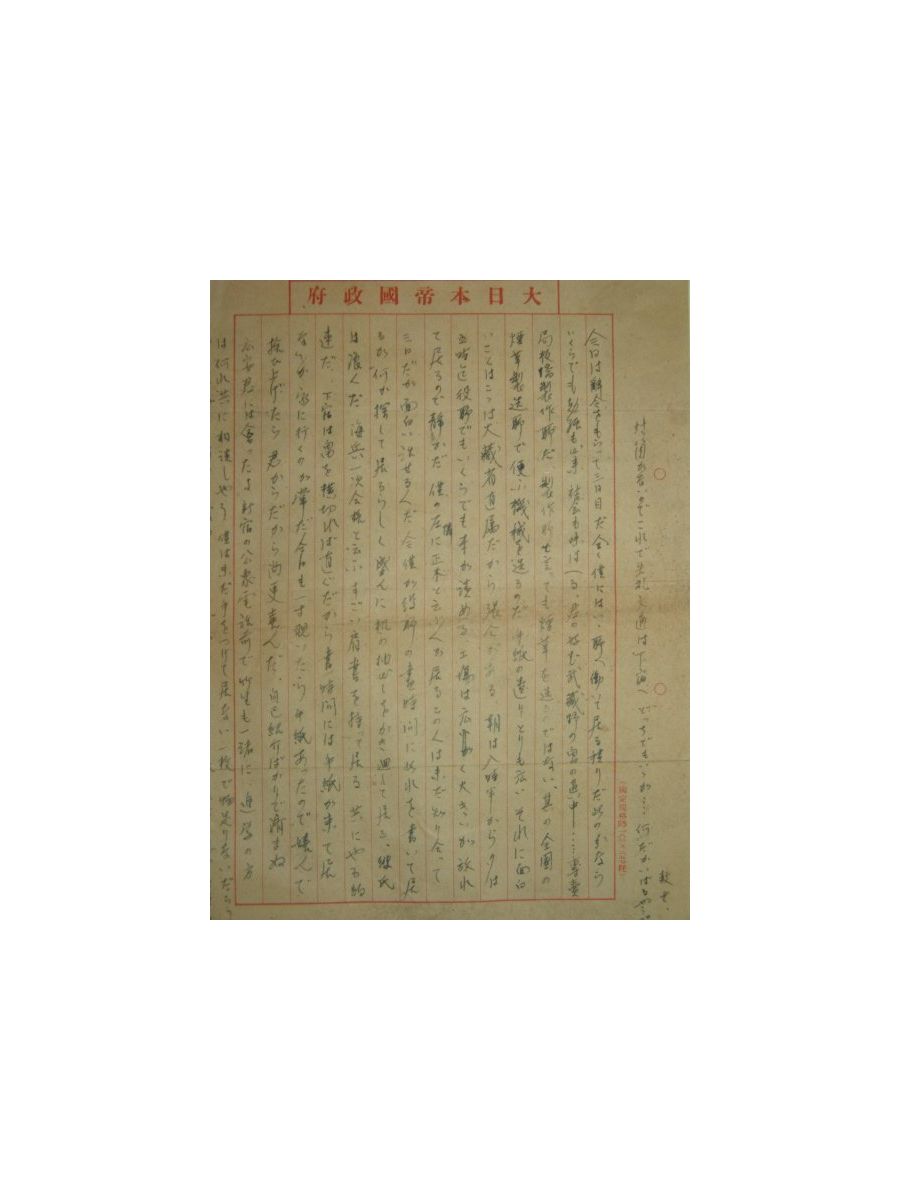 大日本帝國政府
今日は辞令をもらって三日目だ全く僕にはいゝ所へ働いて居る積りだ此の分なら
いくらでも勉強も出来、社会も味はへる、君の好む武蔵野の雲の道中……専売
局板橋製作所だ 製作所と言っても煙草を造るのではない、其の全国の
煙草製造所で使ふ機械を造るのだ 手紙の遣りとりも広い それに面白
いことはこっは大藏省直属だから張合がある 朝は八時半から夕は
五時迄役所でもいくらでも本が読める、工場は広く大きいが放れ
て居るので静かだ 僕の左隣に正木と云ふ人が居るこの人は未だ知り合って
三日だが面白い話せる人だ 今僕が役所の昼時間に此れを書いて居
るが何か探して居るらしく盛んに机の抽出しをかき廻して居る、彼氏
は浪人だ 海兵一次合格と云ふすごい肩書を持って居る 共にやる約
束だ、下宿は畠を横切れば直ぐだから昼時間には手紙が来て居
ないか家に行くのが常だ今日も一寸覗いたら手紙あったので喜んで
拾ひ上げたら君からだから尚更喜んだ、自己紹介ばかりで済まぬ
君には會ったよ 新宿の公衆電話前で 生も一緒に 進学の方
は何れ共に相談しやう 僕は未だ手をつけて居ない 一枚で物足りないだらう
封筒が
これで失礼 文通は下宿へ どっちでもいゝから 何だか
敬士、